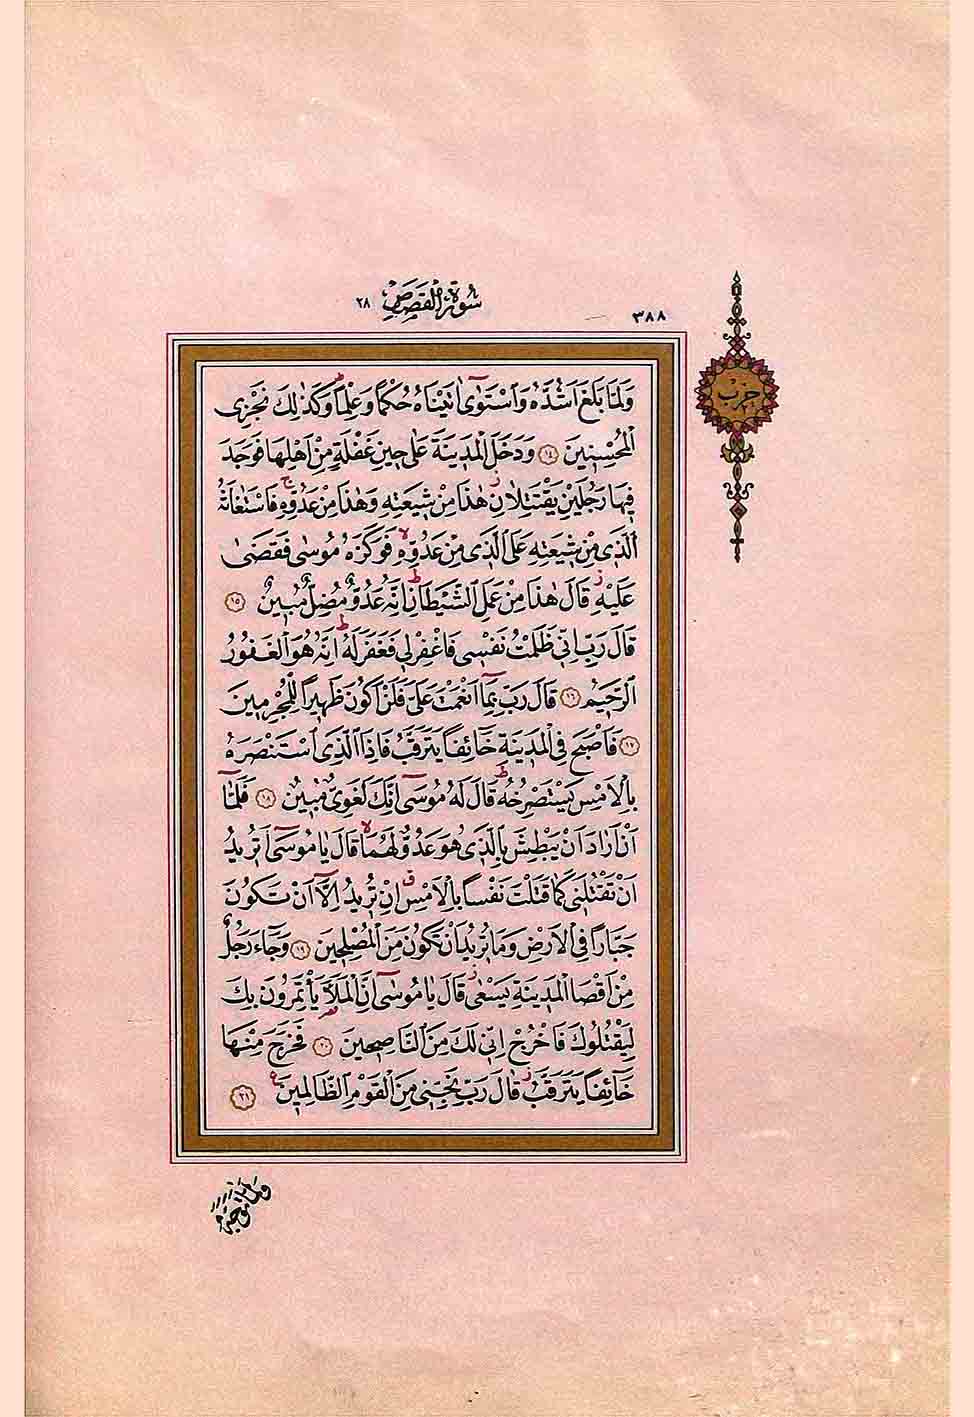 ٣٨٨
سُورَةُ الْقَصَصِ ٢٨
حزب
وَلَمَّا بَلَغَ اَشُدَّهُ وَاسْتَوٰٓى اٰتَيْنَاهُ حُكْمًا وَعِلْمًاۜ وَكَذٰلِكَ نَجْزِى
الْمُحْسِنِينَ ﴿١٤﴾ وَدَخَلَ الْمَدِينَةَ عَلٰى حِينِ غَفْلَةٍ مِنْ اَهْلِهَا فَوَجَدَ
فِيهَا رَجُلَيْنِ يَقْتَتِلَانِۘ هٰذَا مِنْ شِيعَتِهِ وَهٰذَا مِنْ عَدُوِّهِۚ فَاسْتَغَاثَهُ
الَّذِى مِنْ شِيعَتِهِ عَلَى الَّذِى مِنْ عَدُوِّهِۙ فَوَكَزَهُ مُوسٰى فَقَضٰى
عَلَيْهِۘ قَالَ هٰذَا مِنْ عَمَلِ الشَّيْطَانِۜ اِنَّهُ عَدُوٌّ مُضِلٌّ مُبِينٌ ﴿١٥﴾
قَالَ رَبِّ اِنِّى ظَلَمْتُ نَفْسِى فَاغْفِرْ لِى فَغَفَرَ لَهُۜ اِنَّهُ هُوَ الْغَفُورُ
الرَّحِيمُ ﴿١٦﴾ قَالَ رَبِّ بِمَٓا اَنْعَمْتَ عَلَىَّ فَلَنْ اَكُونَ ظَهِيرًا لِلْمُجْرِمِينَ
﴿١٧﴾ فَاَصْبَحَ فِى الْمَدِينَةِ خَٓائِفًا يَتَرَقَّبُ فَاِذَا الَّذِى اسْتَنْصَرَهُ
بِالْاَمْسِ يَسْتَصْرِخُهُۜ قَالَ لَهُ مُوسٰٓى اِنَّكَ لَغَوِىٌّ مُبِينٌ ﴿١٨﴾ فَلَمَّٓا
اَنْ اَرَادَ اَنْ يَبْطِشَ بِالَّذِى هُوَ عَدُوٌّ لَهُمَاۙ قَالَ يَا مُوسٰٓى اَتُرِيدُ
اَنْ تَقْتُلَنِى كَمَا قَتَلْتَ نَفْسًا بِالْاَمْسِۗ اِنْ تُرِيدُ اِلَّٓا اَنْ تَكُونَ
جَبَّارًا فِى الْاَرْضِ وَمَا تُرِيدُ اَنْ تَكُونَ مِنَ الْمُصْلِحِينَ ﴿١٩﴾ وَجَٓاءَ رَجُلٌ
مِنْ اَقْصَا الْمَدِينَةِ يَسْعٰىۘ قَالَ يَا مُوسٰٓى اِنَّ الْمَلَاَ يَأْتَمِرُونَ بِكَ
لِيَقْتُلُوكَ فَاخْرُجْ اِنِّى لَكَ مِنَ النَّاصِحِينَ ﴿٢٠﴾ فَخَرَجَ مِنْهَا
خَٓائِفًا يَتَرَقَّبُۘ قَالَ رَبِّ نَجِّنِى مِنَ الْقَوْمِ الظَّالِمِينَ ﴿٢١﴾
وَلَمَّا تَوَجَّهَ